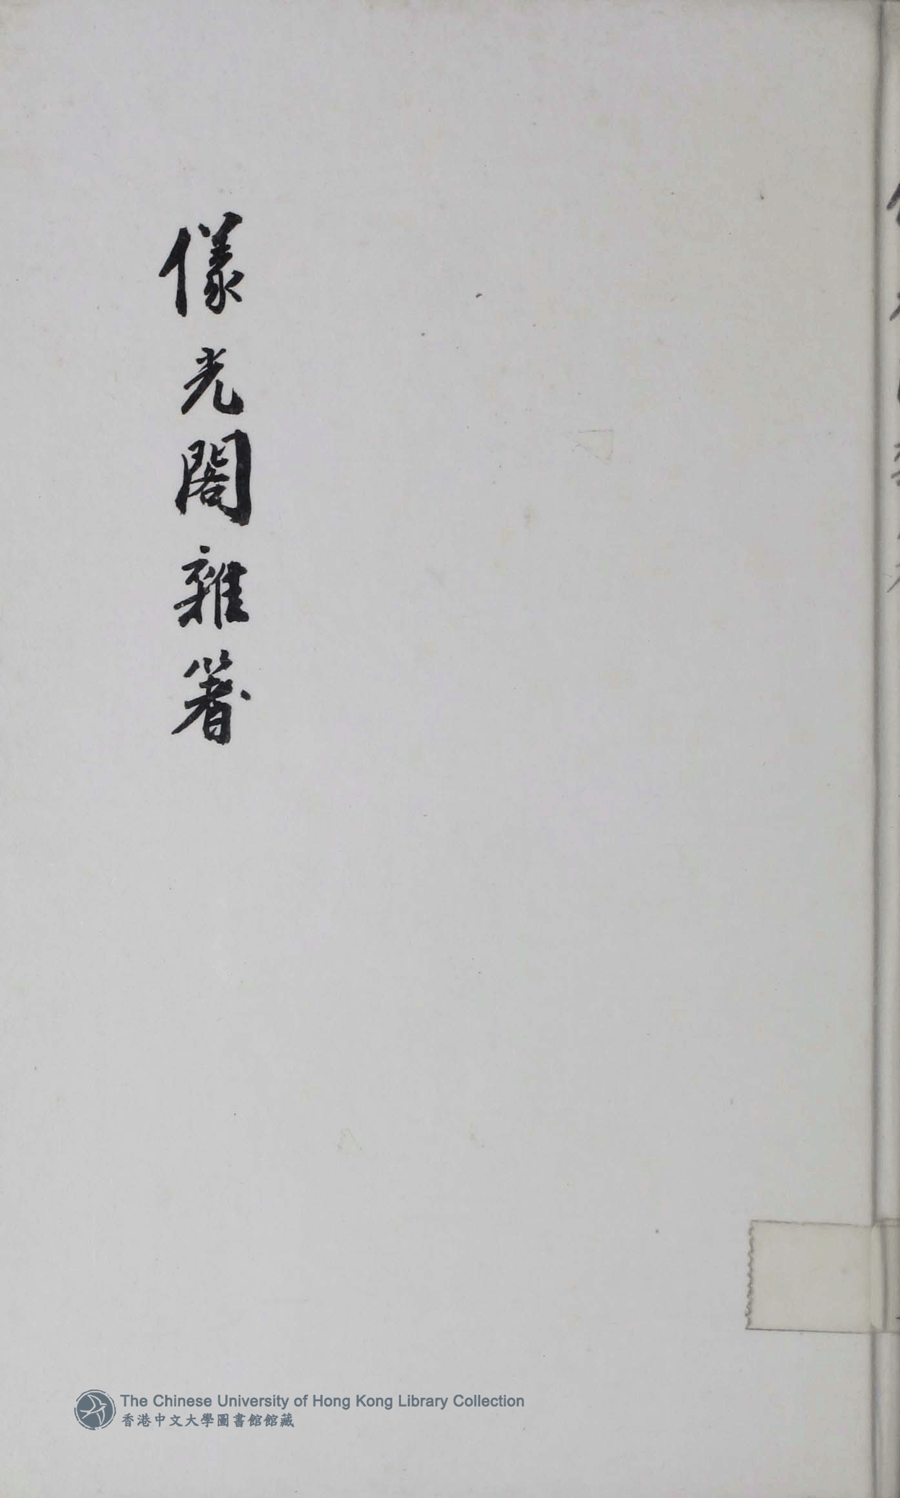 儀光閣雜箸
The Chinese University of Hong Kong Library Collection
香港中文大學圖書館館藏